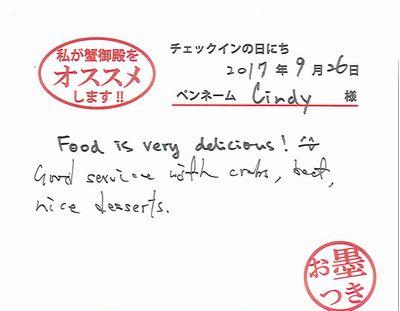 私が蟹御殿を
オススメ
します!!
チェックインの日にち
2017年9月26日
ペンネーム Cindy 様
Food is very delicious!
Good service with crabs, beef,
nice desserts.
お墨
つき